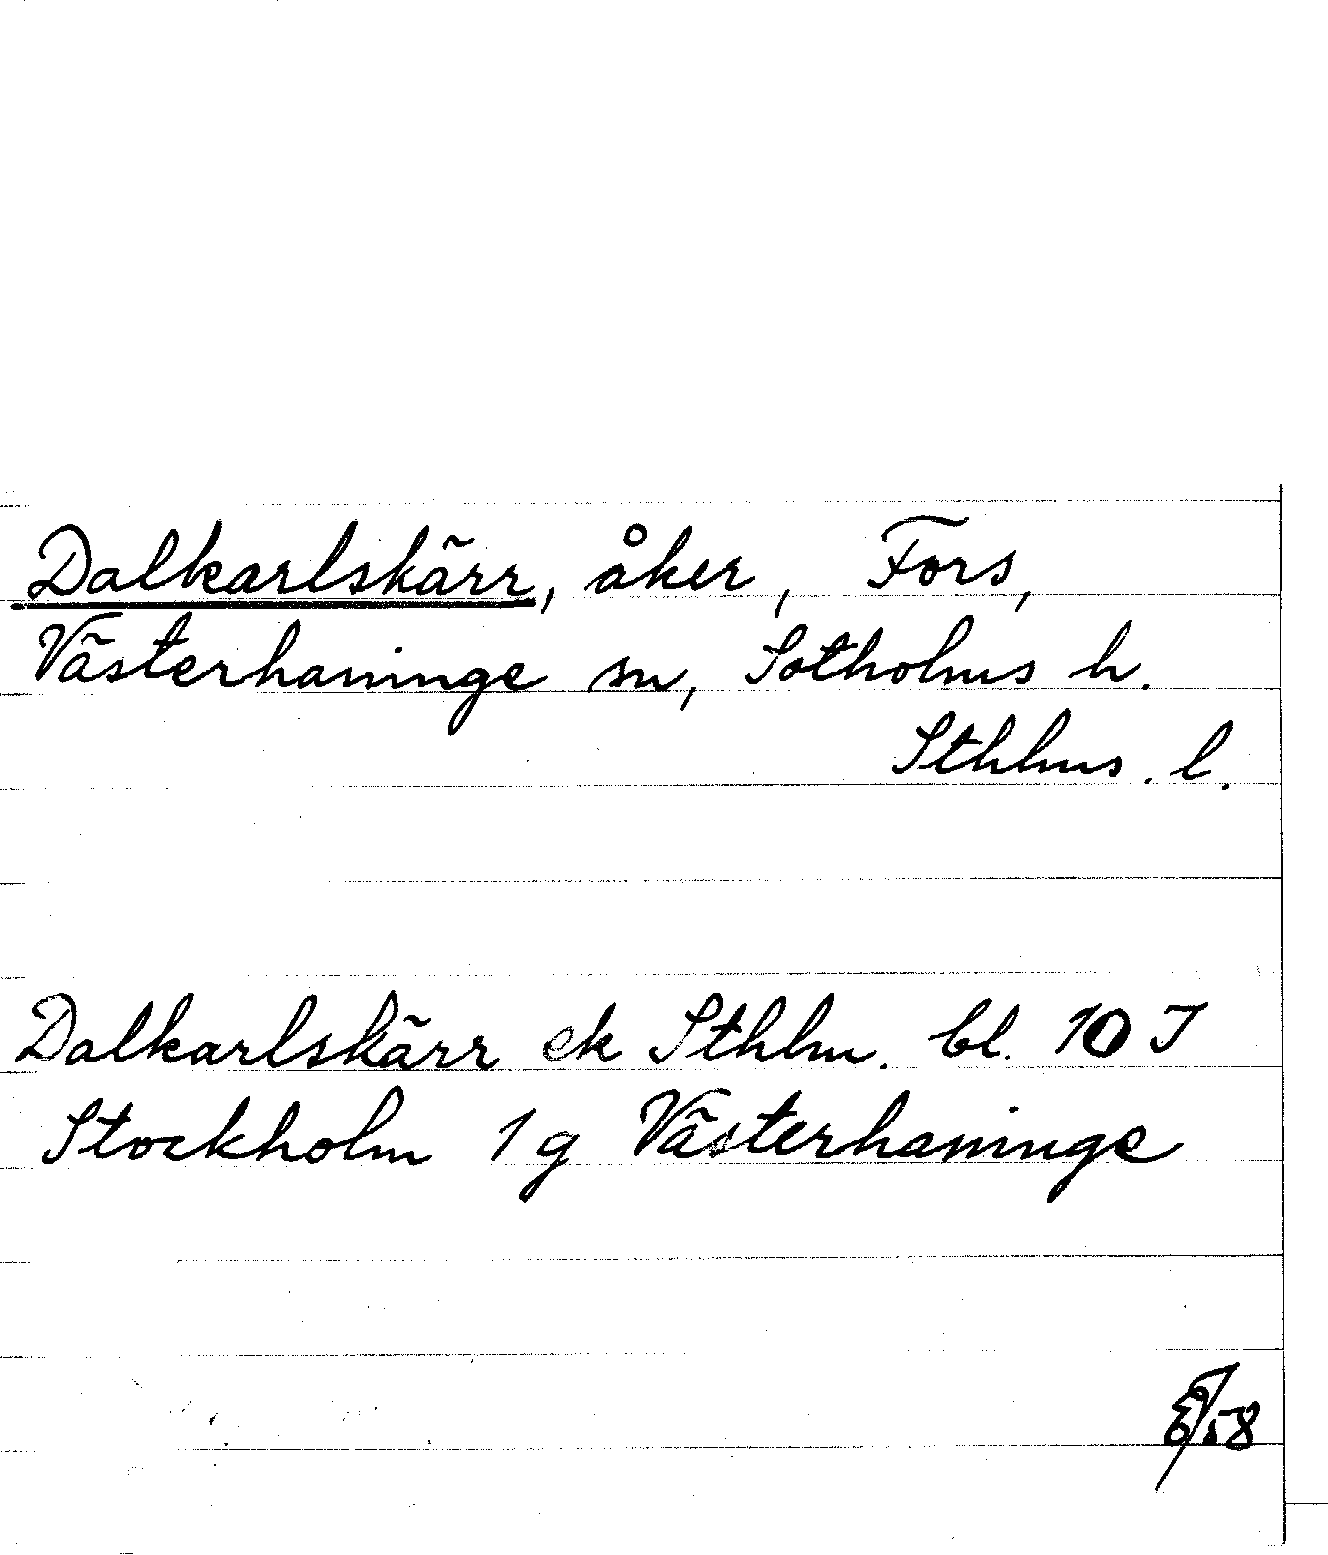 Dalkarlskärr, åker, Fors,
Västerhaninge sn, Sotholms h.
Sthlms. l.
Dalkarlskärr ek Sthlm. bl. 10 I
Stockholm 1 g Västerhaninge
58